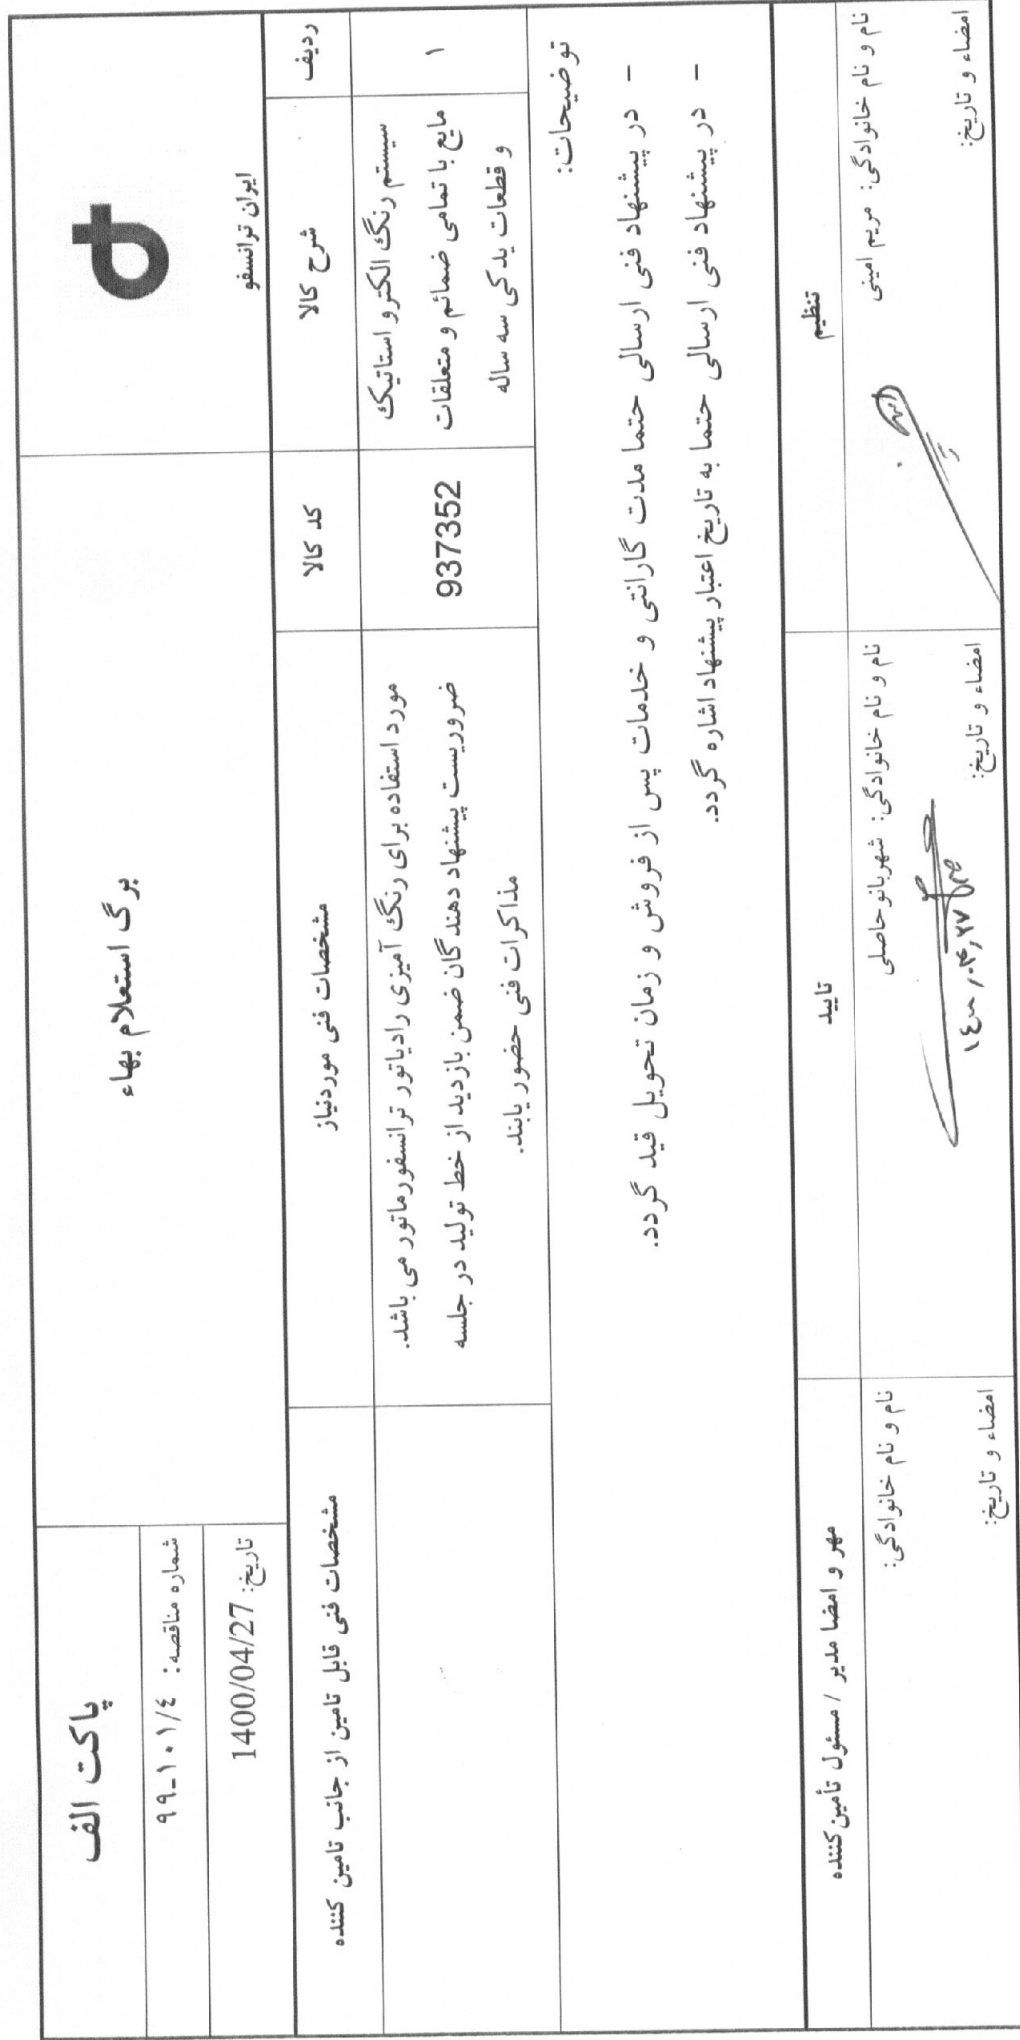 ایران ترانسفو
برگ استعلام بهاء
پاکت الف
شماره مناقصه: ۹۹-۱۰۱/۴
تاریخ: 1400/04/27
ردیف
شرح کالا
کد کالا
مشخصات فنی موردنیاز
مشخصات فنی قابل تامین از جانب تامین کننده
۱
سیستم رنگ الکترو استاتیک
مایع با تمامی ضمائم و متعلقات
و قطعات یدکی سه ساله
937352
مورد استفاده برای رنگ آمیزی رادیاتور ترانسفورماتور می باشد.
ضروریست پیشنهاد دهندگان ضمن بازدید از خط تولید در جلسه
مذاکرات فنی حضور یابند.
توضیحات:
- در پیشنهاد فنی ارسالی حتما مدت گارانتی و خدمات پس از فروش و زمان تحویل قید گردد.
- در پیشنهاد فنی ارسالی حتما به تاریخ اعتبار پیشنهاد اشاره گردد.
تنظیم
تایید
مهر و امضا مدیر / مسئول تأمین کننده
نام و نام خانوادگی: مریم امینی
امضاء و تاریخ:
نام و نام خانوادگی: شهربانو حاصلی
امضاء و تاریخ:
۱۴۰۰,۰۴,۲۷
نام و نام خانوادگی:
امضاء و تاریخ: